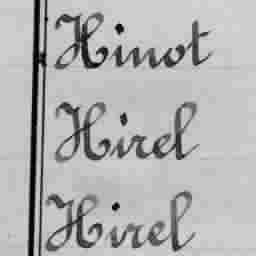 Hinot
Hirel
Hirel